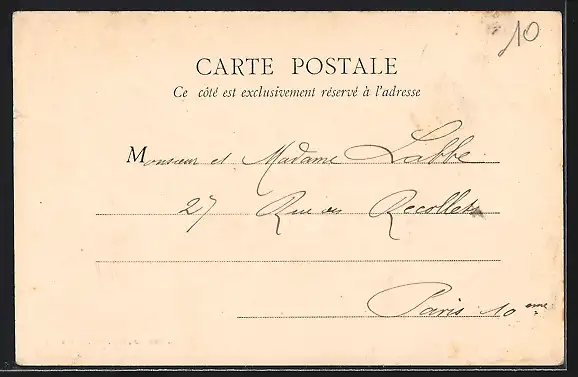 10
CARTE POSTALE
Ce côté est exclusivement réservé à l'adresse
Monsieur et Madame Labbe
27 Rue des Recollets
Paris 10 eme